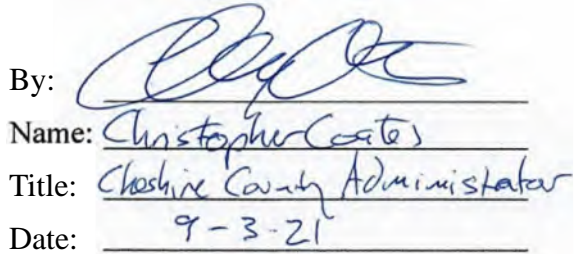 By:
Name: Christopher Coates
Title: Cheshire County Administrator
Date: 9-3-21